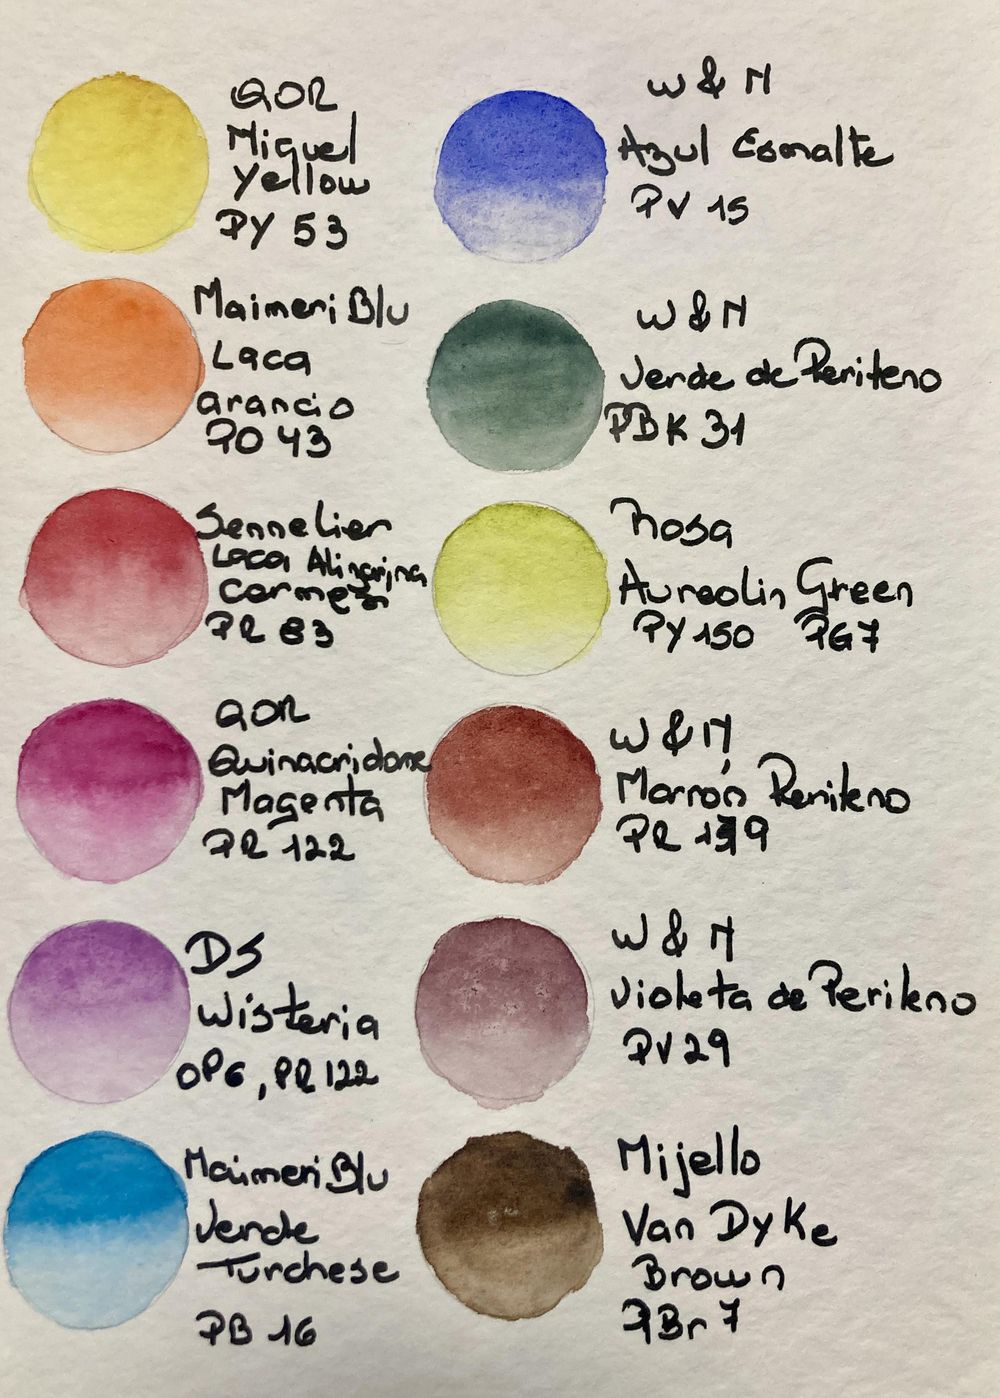 QOR
Miguel
Yellow
PY 53
Maimeri Blu
Laca
arancio
PO 43
Sennelier
Laca Alinarjna
Carmezi
PR 83
QOR
Quinacridone
Magenta
PR 122
DS
Wisteria
OP6, PR 122
Maimeri Blu
Verde
Turchese
PB 16
W & N
Azul Esmalte
PV 15
W & N
Verde de Perileno
PBK 31
Rosa
Aureolin Green
PY 150 PG7
W & N
Marrón Perileno
PR 179
W & N
Violeta de Perileno
PV 29
Mijello
Van Dyke
Brown
PBr 7